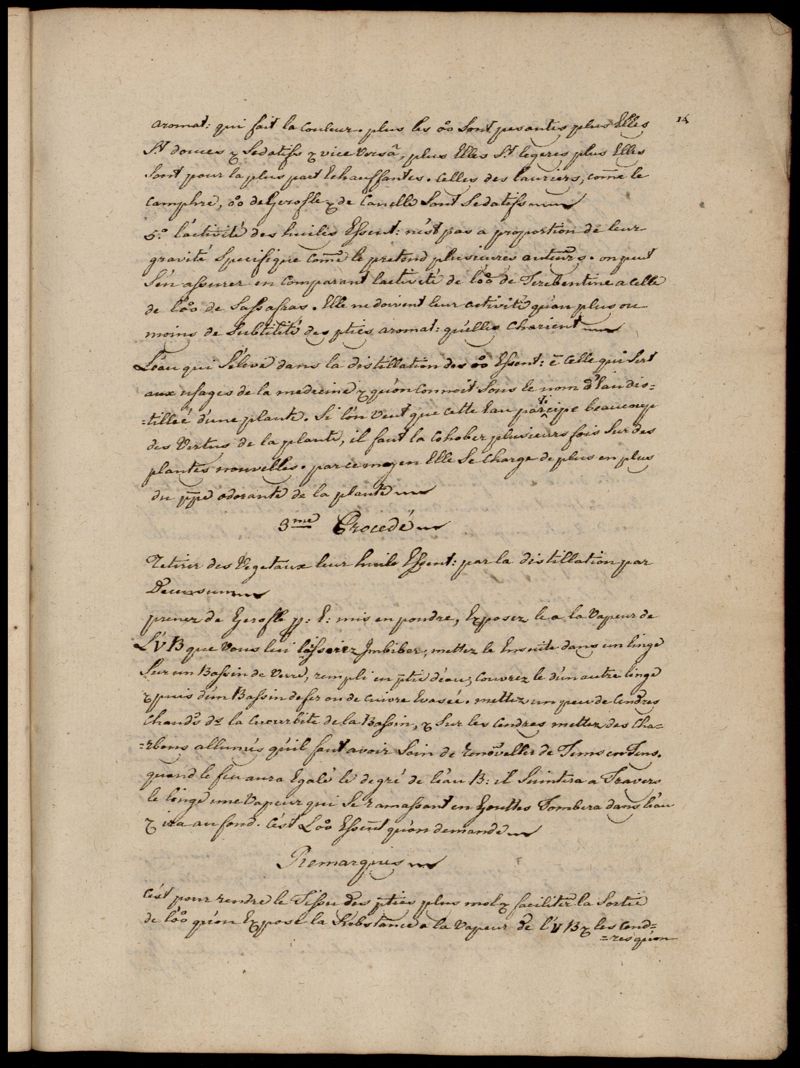 14
aromat: qui fait la couleur. plus les oo sont pesantes plus Elles
st douces & sedatifs & vice versâ, plus Elles st legeres plus Elles
sont pour la plus part Echauffantes. celles des lauriers, come le
camphre, oo de Gerofle & de Canelle sont sedatifs
5.o l'activité des huiles Essent: n'est pas a proportion de leur
gravité specifique come le pretend plusieures auteurs. on peut
s'en assurer en comparant l'activité de l'oo de Terebentine a celle
de l'oo de sassafras. Elle ne doivent leur activité qu'au plus ou
moins de subtilité des pties aromat: qu'elles charient
L'eau qui s'éleve dans la distillation des oo Essent: ē celle qui sert
aux usages de la medecine & qu'on connoit sous le nom d'Eau dis=
=tilleé d'une plante. si l'on veut que cette Eau participe beaucoup
des vertus de la plante, il faut la cohober plusieurs fois sur des
plantes nouvelles. par ce moyen Elle se charge de plus en plus
du ppe odorante de la plante
3.me Procedé
Retirer des Vegetaux leur huile Essent: par la distillation par
Decensum
prenez de Gerofle p: E: mis en poudre, Exposez le a la vapeur de
L'v B que vous lui laisserez Imbiber, mettez le Ensuite dans un linge
sur un Bassin de verre, rempli en ptie d'eau; couvrez le d'un autre linge
& puis d'un Bassin de fer ou de cuivre Evasée. mettez un peu de Cendres
chauds ds la Cucurbite de la Bassin, & sur les cendres mettez des cha=
=rbons allumés qu'il faut avoir soin de renouveller de Tems en Tems.
quand le feu aura Egalé le degré de l'eau B: il suintera a Travers
le linge une vapeur qui se ramassant en Gouttes Tombera dans l'eau
& ira au fond. c'est L'oo Essent qu'on demande
Remarques
c'est pour rendre le Tissu des pties plus mol & faciliter la sortie
de l'oo qu'on Expose la substance a la vapeur de l'v B & les cend=
=res qu'on